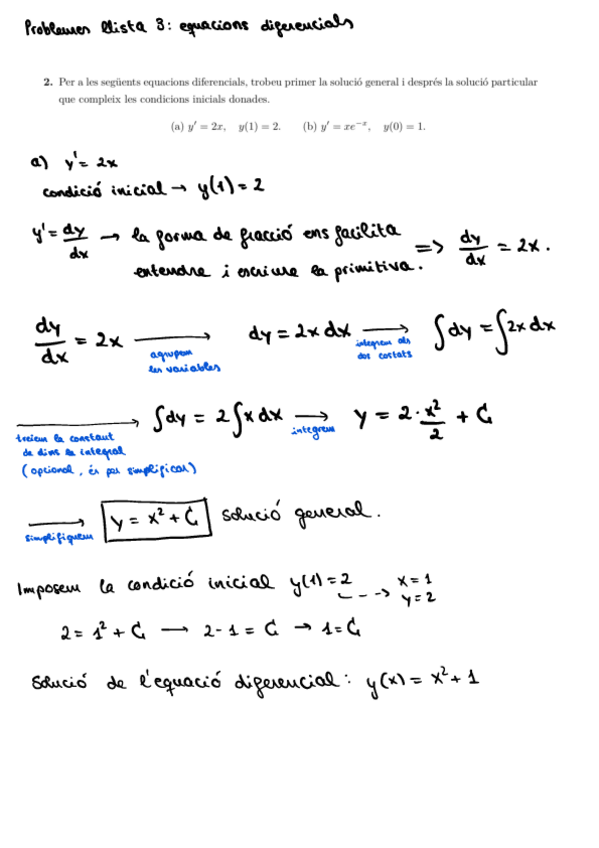 Problemes llista 3: equacions diferencials
2. Per a les següents equacions diferencials, trobeu primer la solució general i després la solució particular
que compleix les condicions inicials donades.
(a) y′ = 2x, y(1) = 2. (b) y′ = xe⁻ˣ, y(0) = 1.
a) y' = 2x
condició inicial → y(1) = 2
y' = dy/dx → la forma de fracció ens facilita
entendre i escriure la primitiva. => dy/dx = 2x.
dy/dx = 2x → dy = 2x dx → ∫dy = ∫2x dx
agrupem
les variables
integrem als
dos costats
→ ∫dy = 2∫x dx → y = 2·x²/2 + C
integrem
treiem la constant
de dins la integral
(opcional, és per simplificar)
→ y = x² + C solució general.
simplifiquem
Imposem la condició inicial y(1) = 2 --→ x = 1
y = 2
2 = 1² + C → 2 - 1 = C → 1 = C
Solució de l'equació diferencial: y(x) = x² + 1